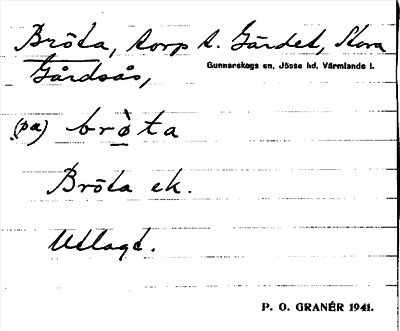 Bröta, torp t. Gärdet, Stora
Gårdsås,
Gunnarskogs sn, Jösse hd, Värmlands l.
(pa) brò̱ta
Bröta ek.
Utlagd.
P. O. GRANÉR 1941.